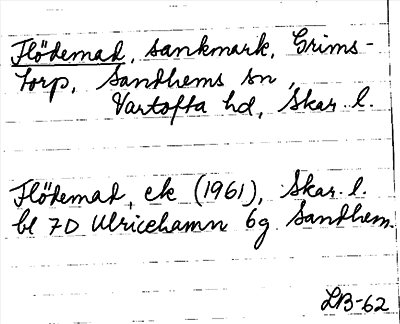 Flödemad, sankmark, Grims-
torp, Sandhems sn,
Vartofta hd, Skar. l.
Flödemad, ek (1961), Skar. l.
bl 7D Ulricehamn 6g Sandhem.
LB-62